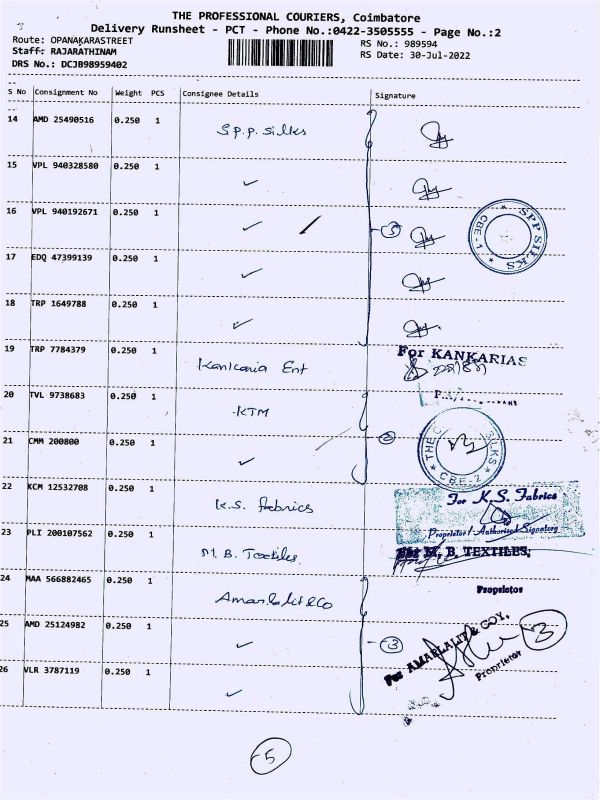 THE PROFESSIONAL COURIERS, Coimbatore
Delivery Runsheet - PCT - Phone No.:0422-3505555 - Page No.:2
Route: OPANAKARASTREET
Staff: RAJARATHINAM
DRS No.: DCJB98959402
RS No.: 989594
RS Date: 30-Jul-2022
S No Consignment No Weight PCS Consignee Details Signature
14 AMD 25490516 0.250 1 S.p.p. Silks
15 VPL 940328580 0.250 1 ✓
16 VPL 940192671 0.250 1 ✓ 5
SPP SILKS
CBE-1
17 EDQ 47399139 0.250 1 ✓
18 TRP 1649788 0.250 1 ✓
19 TRP 7784379 0.250 1 Kankaria Ent
For KANKARIAS
20 TVL 9738683 0.250 1 KTM
21 CMM 200800 0.250 1 ✓ 2
THE SILKS
CBE-2
22 KCM 12532708 0.250 1 K.S. Fabrics
For K.S. Fabrics
Proprietor / Authorised Signatory
23 PLI 200107562 0.250 1 M.B. Textiles
For M. B. TEXTILES,
Proprietor
24 MAA 566882465 0.250 1 Amarlalit & Co
25 AMD 25124982 0.250 1 ✓ 3
For AMARLALIT & COY.
Proprietor
3
26 VLR 3787119 0.250 1 ✓
5